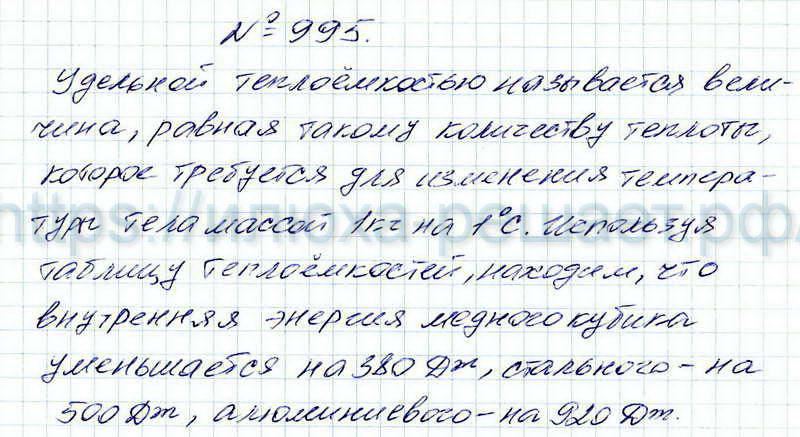 № 995.
Удельной теплоёмкостью называется вели-
чина, равная такому количеству теплоты,
которое требуется для изменения темпера-
туры тела массой 1кг на 1°С. Используя
таблицу теплоёмкостей, находим, что
внутренняя энергия медного кубика
уменьшается на 380 Дж, стального - на
500 Дж, алюминиевого - на 920 Дж.